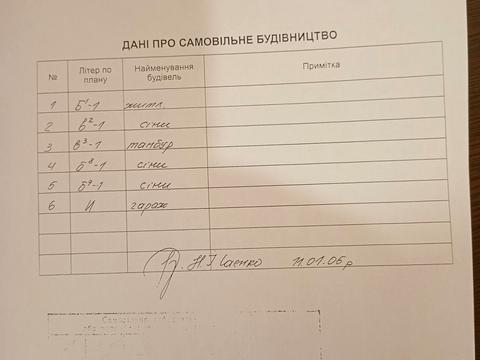 ДАНІ ПРО САМОВІЛЬНЕ БУДІВНИЦТВО
№ Літер по плану Найменування будівель Примітка
1 Б¹-1 житл.
2 в²-1 сіни
3 в³-1 тамбур
4 б⁸-1 сіни
5 б⁹-1 сіни
6 И гараж
11.01.06 р